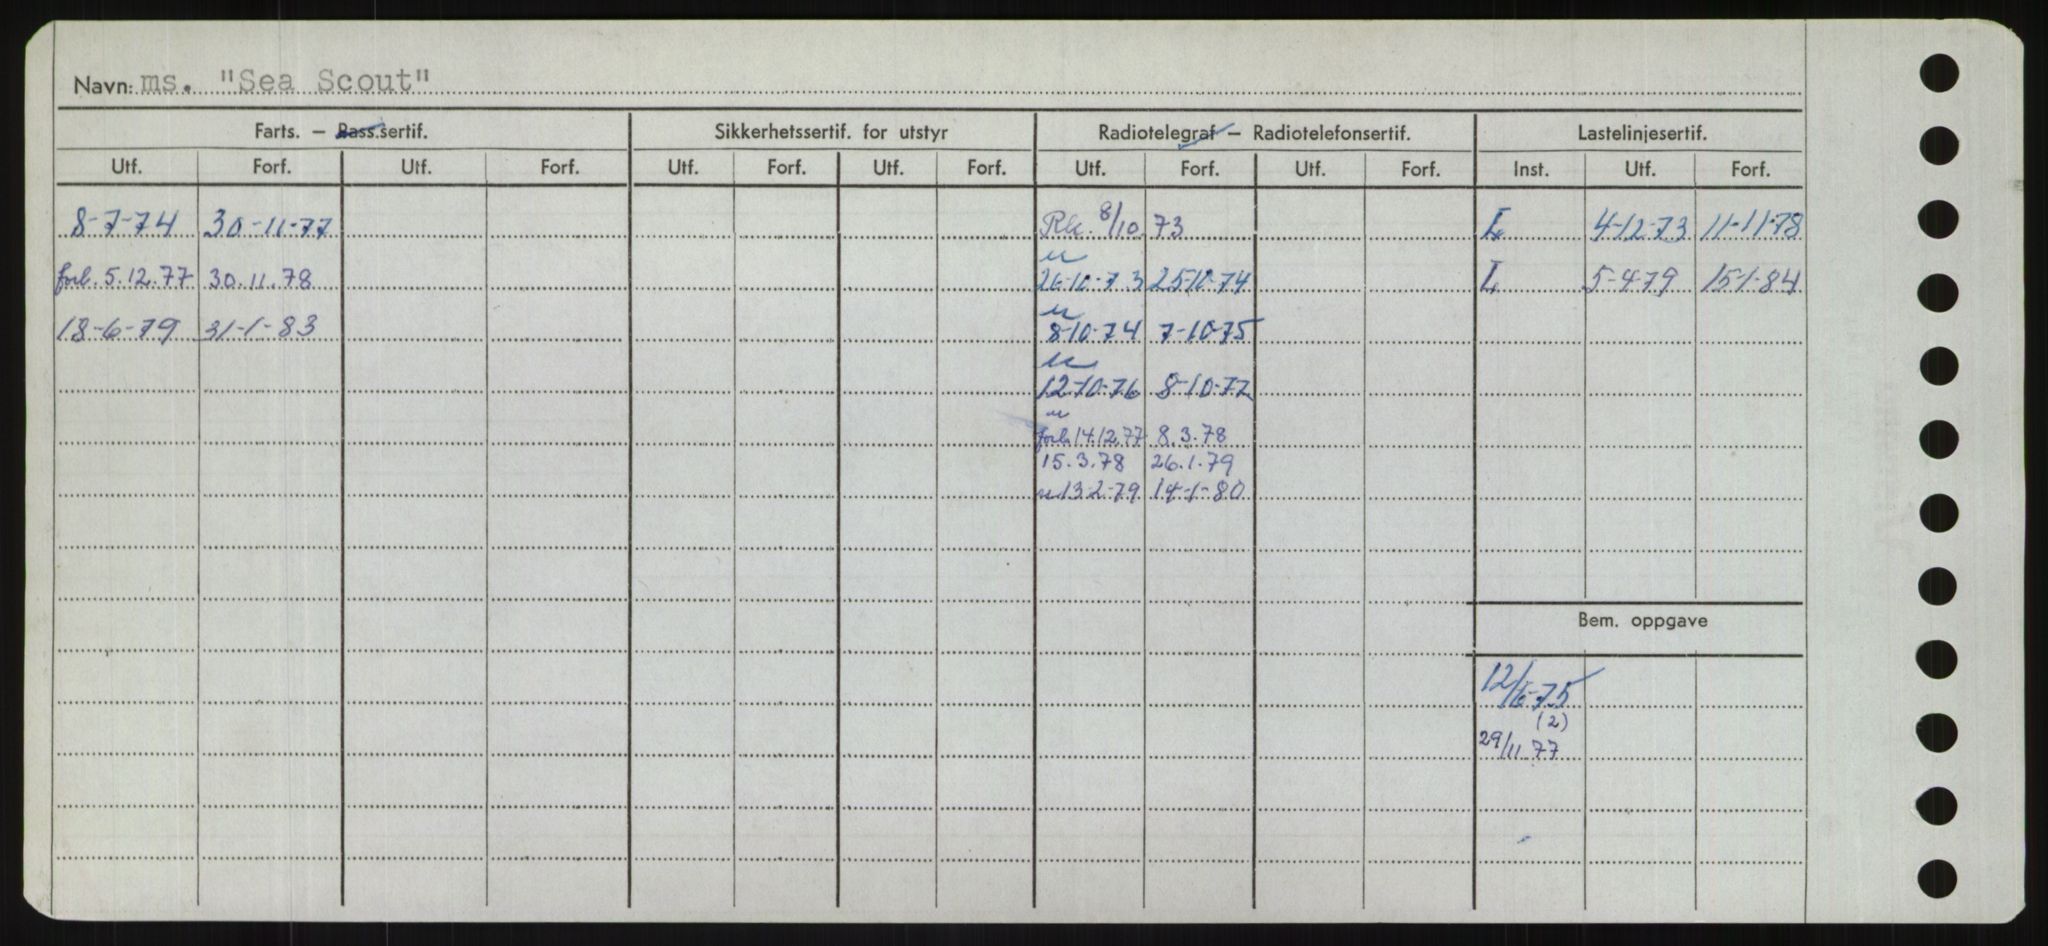 Navn: ms. "Sea Scout"
Farts. – Pass.sertif. Sikkerhetssertif. for utstyr Radiotelegraf – Radiotelefonsertif. Lastelinjesertif.
Utf. Forf. Utf. Forf. Utf. Forf. Utf. Forf. Utf. Forf. Utf. Forf. Inst. Utf. Forf.
8-7-74 30-11-77 8/10 73 L 4-12-73 11-11-78
forl. 5.12.77 30.11.78 26-10-73 25-10-74 L 5-4-79 15-1-84
18-6-79 31-1-83 8-10-74 7-10-75
12-10-76 8-10-77
forl. 14.12.77 8.3.78
15.3.78 26.1.79
13-2-79 14-1-80
Bem. oppgave
12/6-75
(2)
29/11.77